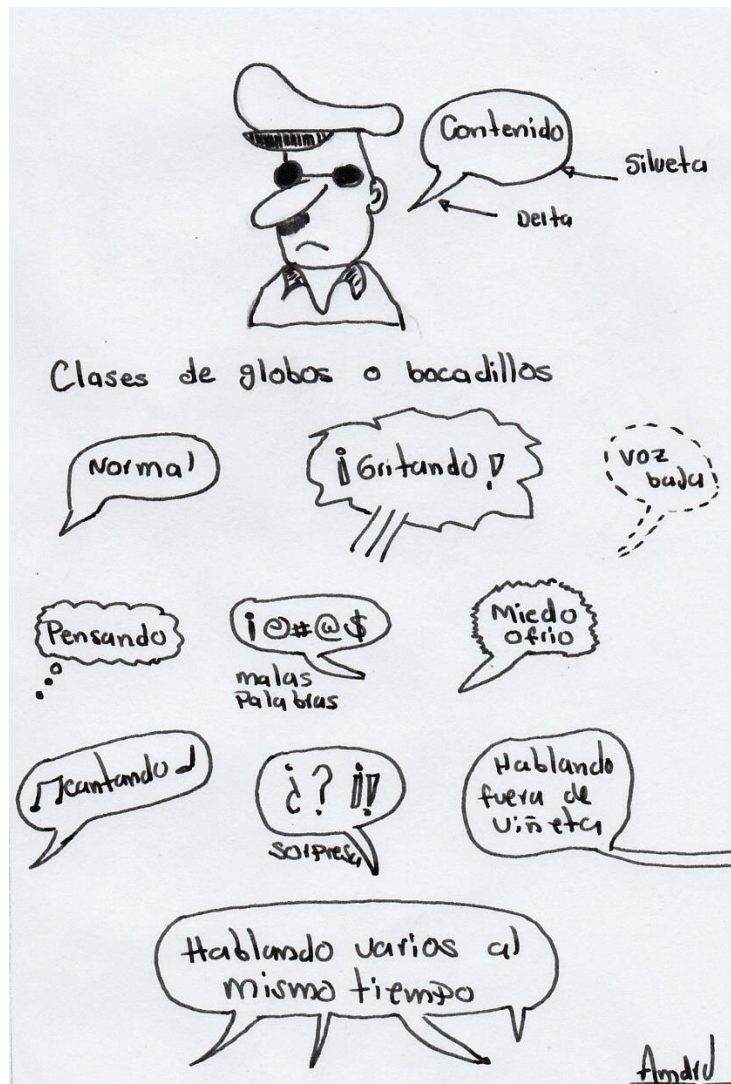 Contenido
Silueta
Delta
Clases de globos o bocadillos
Normal
¡Gritando!
voz
baja
Pensando
¡@#@$
malas
Palabras
Miedo
o frio
cantando
¿? ¡!
sorpresa
Hablando
fuera de
viñeta
Hablando varios al
mismo tiempo